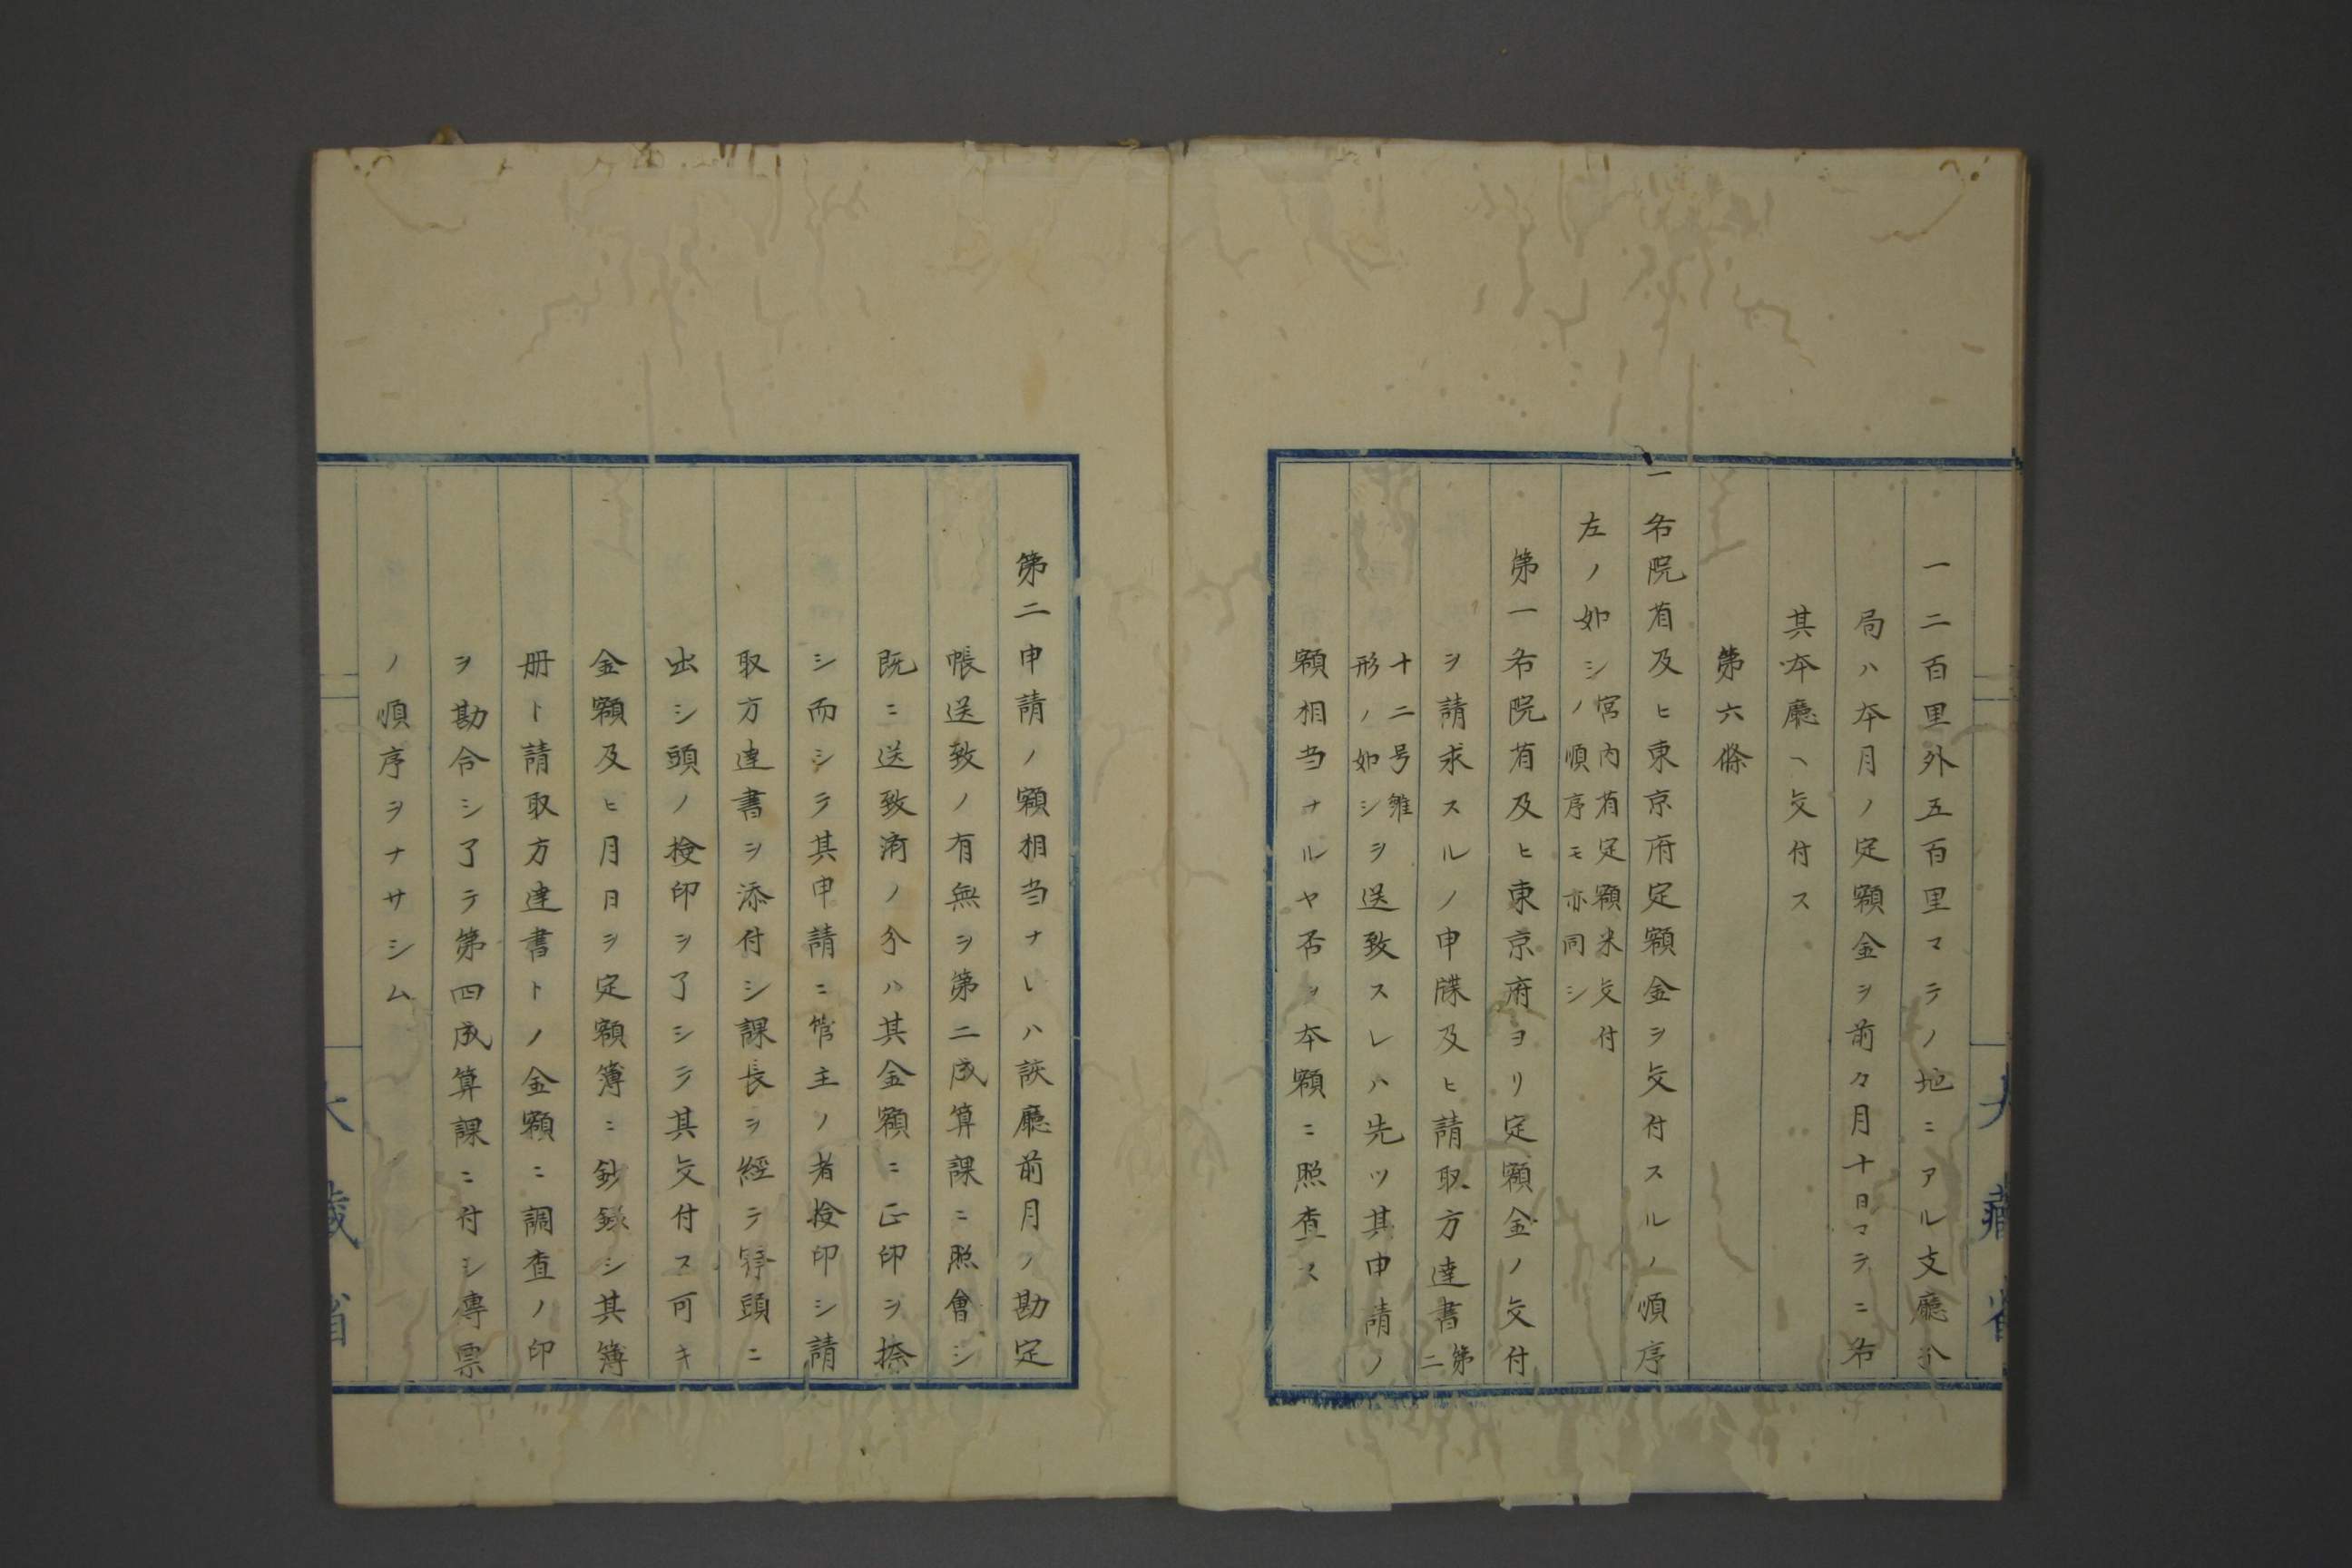 一二百里外五百里マテノ地ニアル支廳分
局ハ本月ノ定額金ヲ前々月十日マテニ各
其本廳ヘ交付ス
第六條
一各院省及ヒ東京府定額金ヲ交付スルノ順序
左ノ如シ宮内省定額米交付
ノ順序モ亦同シ
第一各院省及ヒ東京府ヨリ定額金ノ交付
ヲ請求スルノ申牒及ヒ請取方達書第
二
十二号雛
形ノ如シヲ送致スレハ先ツ其申請ノ
額相当ナルヤ否ヲ本額ニ照査ス
大藏省
第二申請ノ額相当ナレハ該廳前月ノ勘定
帳送致ノ有無ヲ第二成算課ニ照會シ
既ニ送致済ノ分ハ其金額ニ正印ヲ捺
シ而シテ其申請ニ管主ノ者檢印シ請
取方達書ヲ添付シ課長ヲ經テ頭ニ
出シ頭ノ檢印ヲ了シテ其交付ス可キ
金額及ヒ月日ヲ定額簿ニ鈔錄シ其簿
册ト請取方達書トノ金額ニ調査ノ印
ヲ勘合シ了テ第四成算課ニ付シ傳票
ノ順序ヲナサシム
大藏省